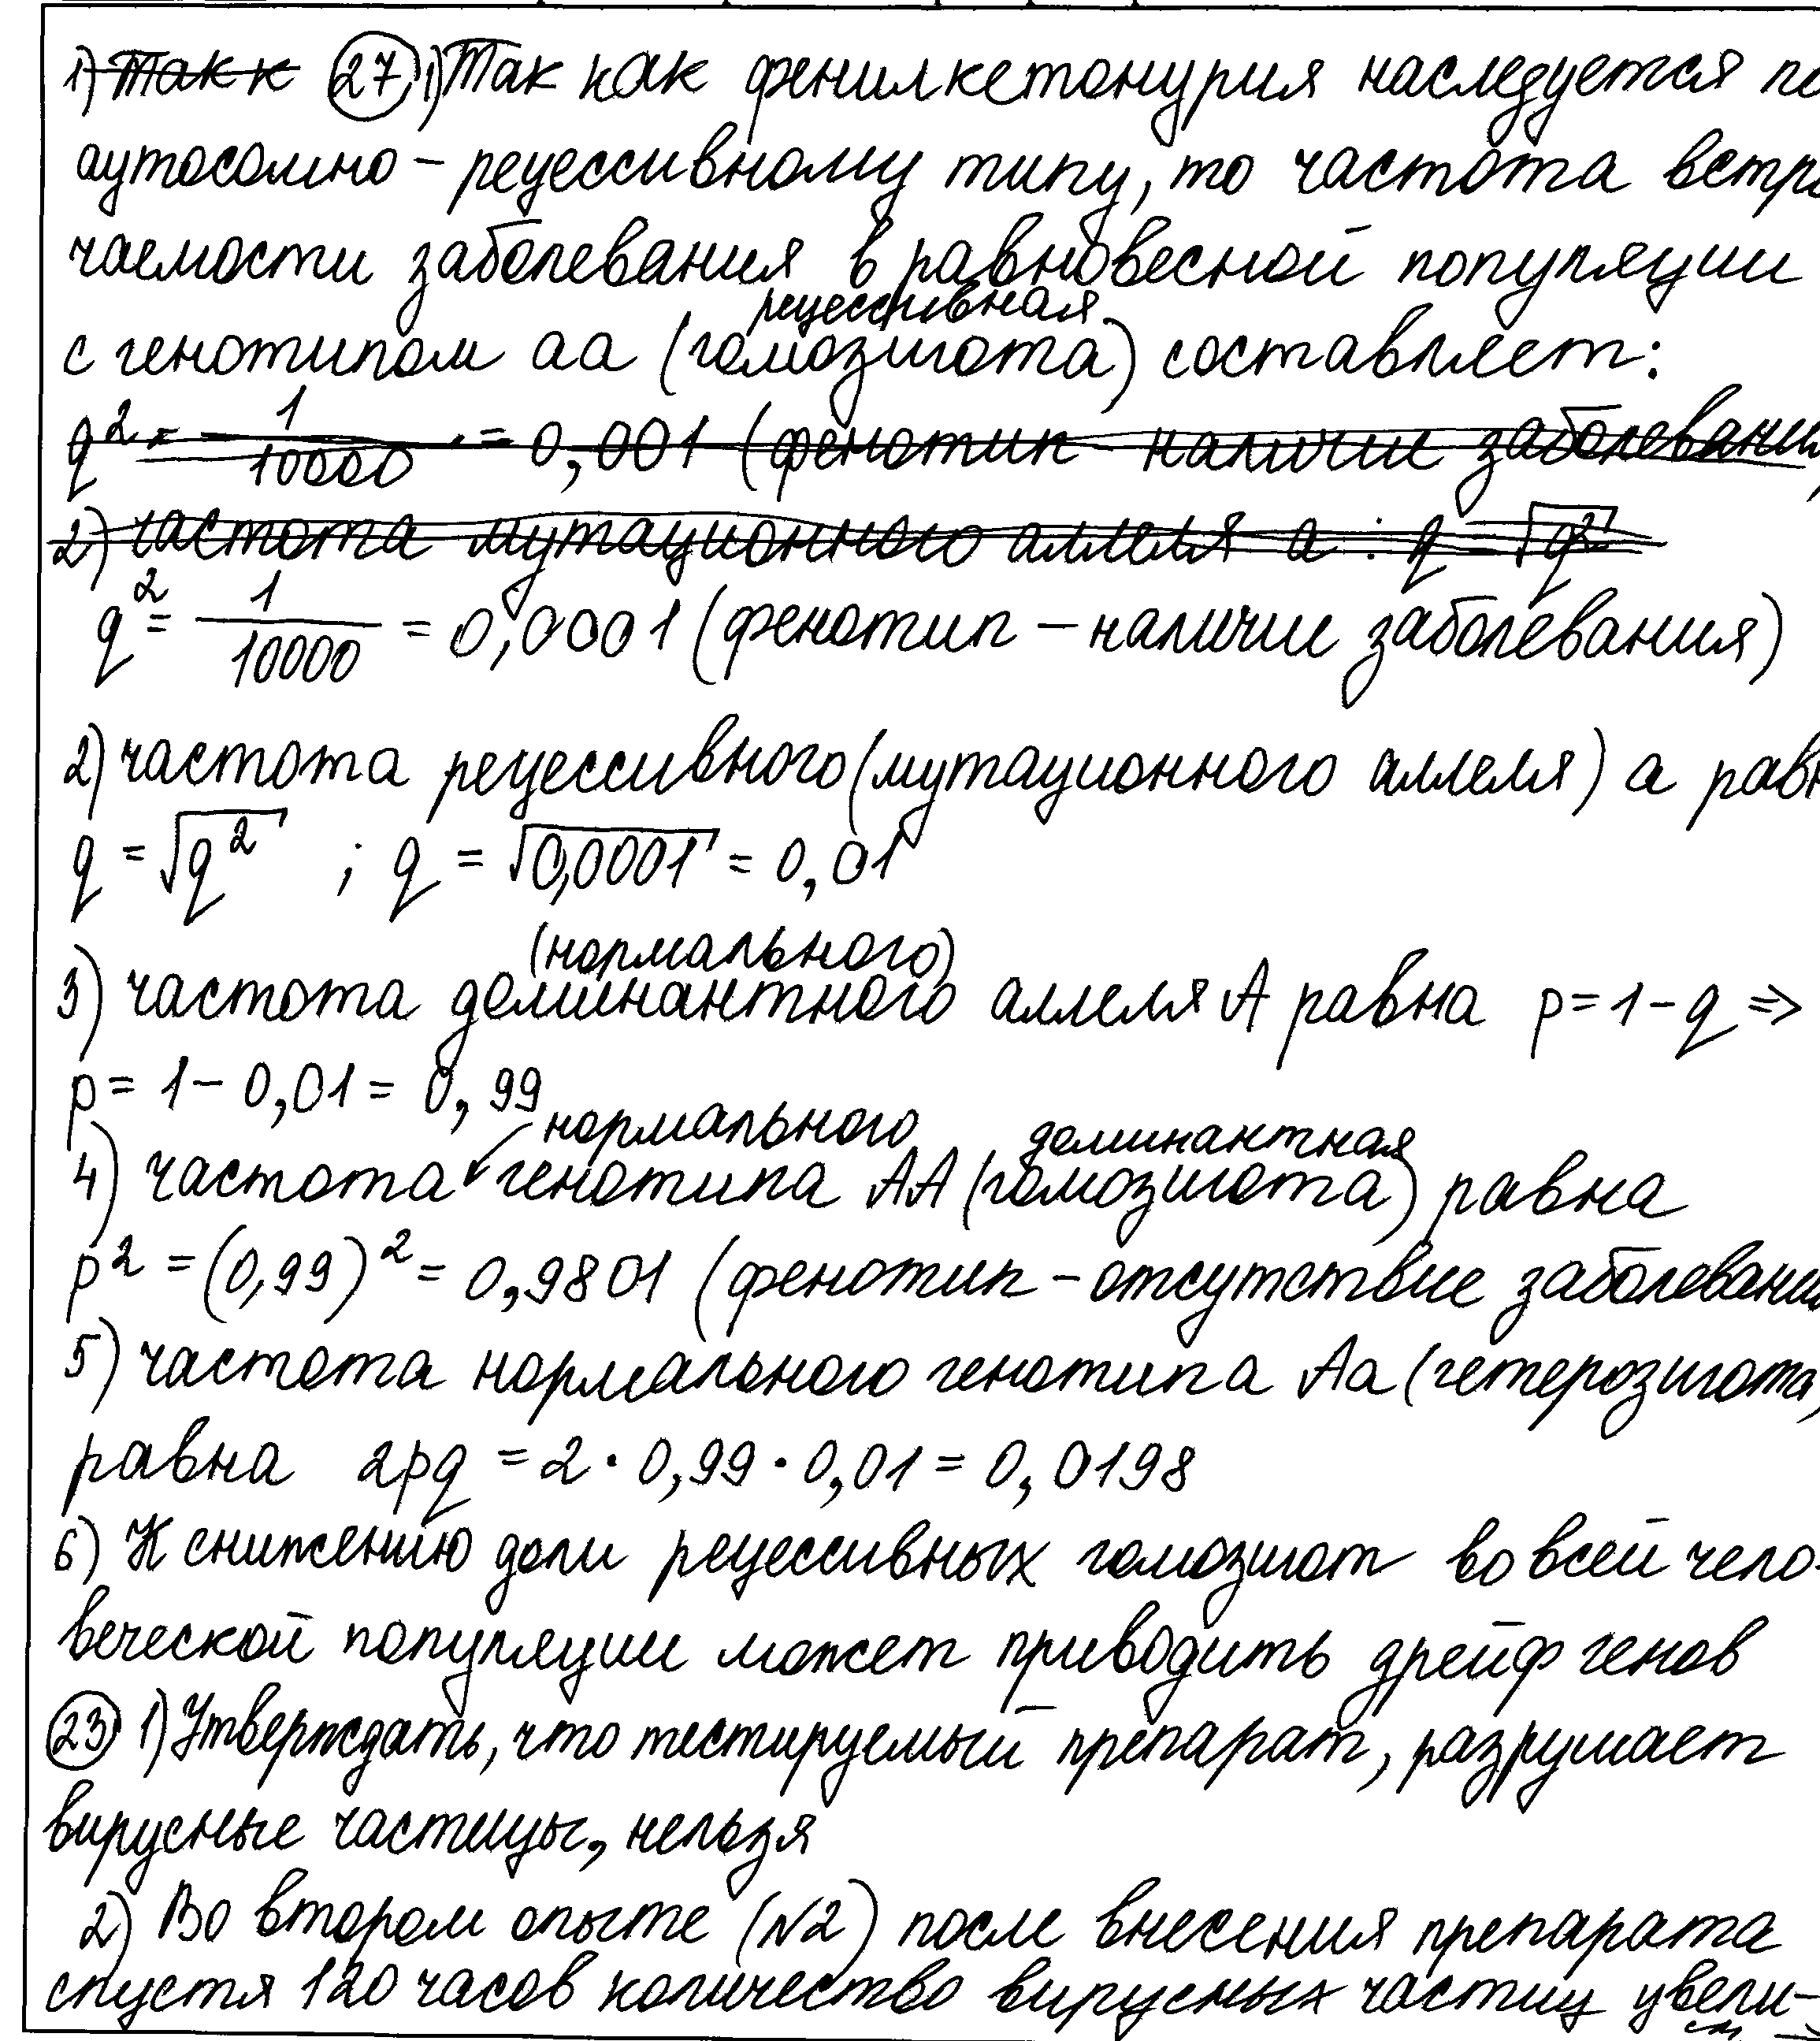 1) Так к (27) 1) Так как фенилкетонурия наследуется по
аутосомно – рецессивному типу, то частота встре
чаемости заболевания в равновесной популяции
рецессивная
с генотипом аа (гомозигота) составляет:
q² = 1/10000 = 0,001 (фенотип – наличие заболевания)
2) частота мутационного аллеля а : q = √q²
q² = 1/10000 = 0,0001 (фенотип – наличие заболевания)
2) частота рецессивного (мутационного аллеля) а равн
q = √q² ; q = √0,0001 = 0,01
(нормального)
3) частота доминантного аллеля А равна p = 1 – q ⇒
p = 1 – 0,01 = 0,99
нормального доминантная
4) частота генотипа АА (гомозигота) равна
p² = (0,99)² = 0,9801 (фенотип – отсутствие заболевани
5) частота нормального генотипа Аа (гетерозигота)
равна 2pq = 2 · 0,99 · 0,01 = 0,0198
6) К снижению доли рецессивных гомозигот во всей чело-
веческой популяции может приводить дрейф генов
(23) 1) Утверждать, что тестируемый препарат, разрушает
вирусные частицы, нельзя
2) Во втором опыте (N2) после внесения препарата
спустя 120 часов количество вирусных частиц увели-